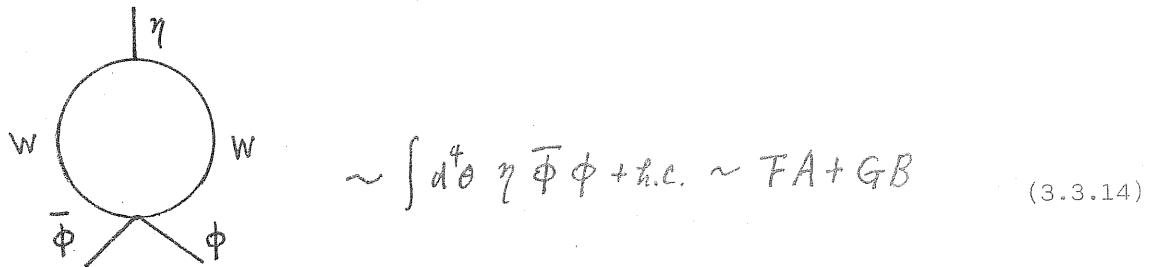 η
W W
∼ ∫ d⁴θ η Φ̄ ϕ + h.c. ∼ FA + GB (3.3.14)
Φ̄ ϕ